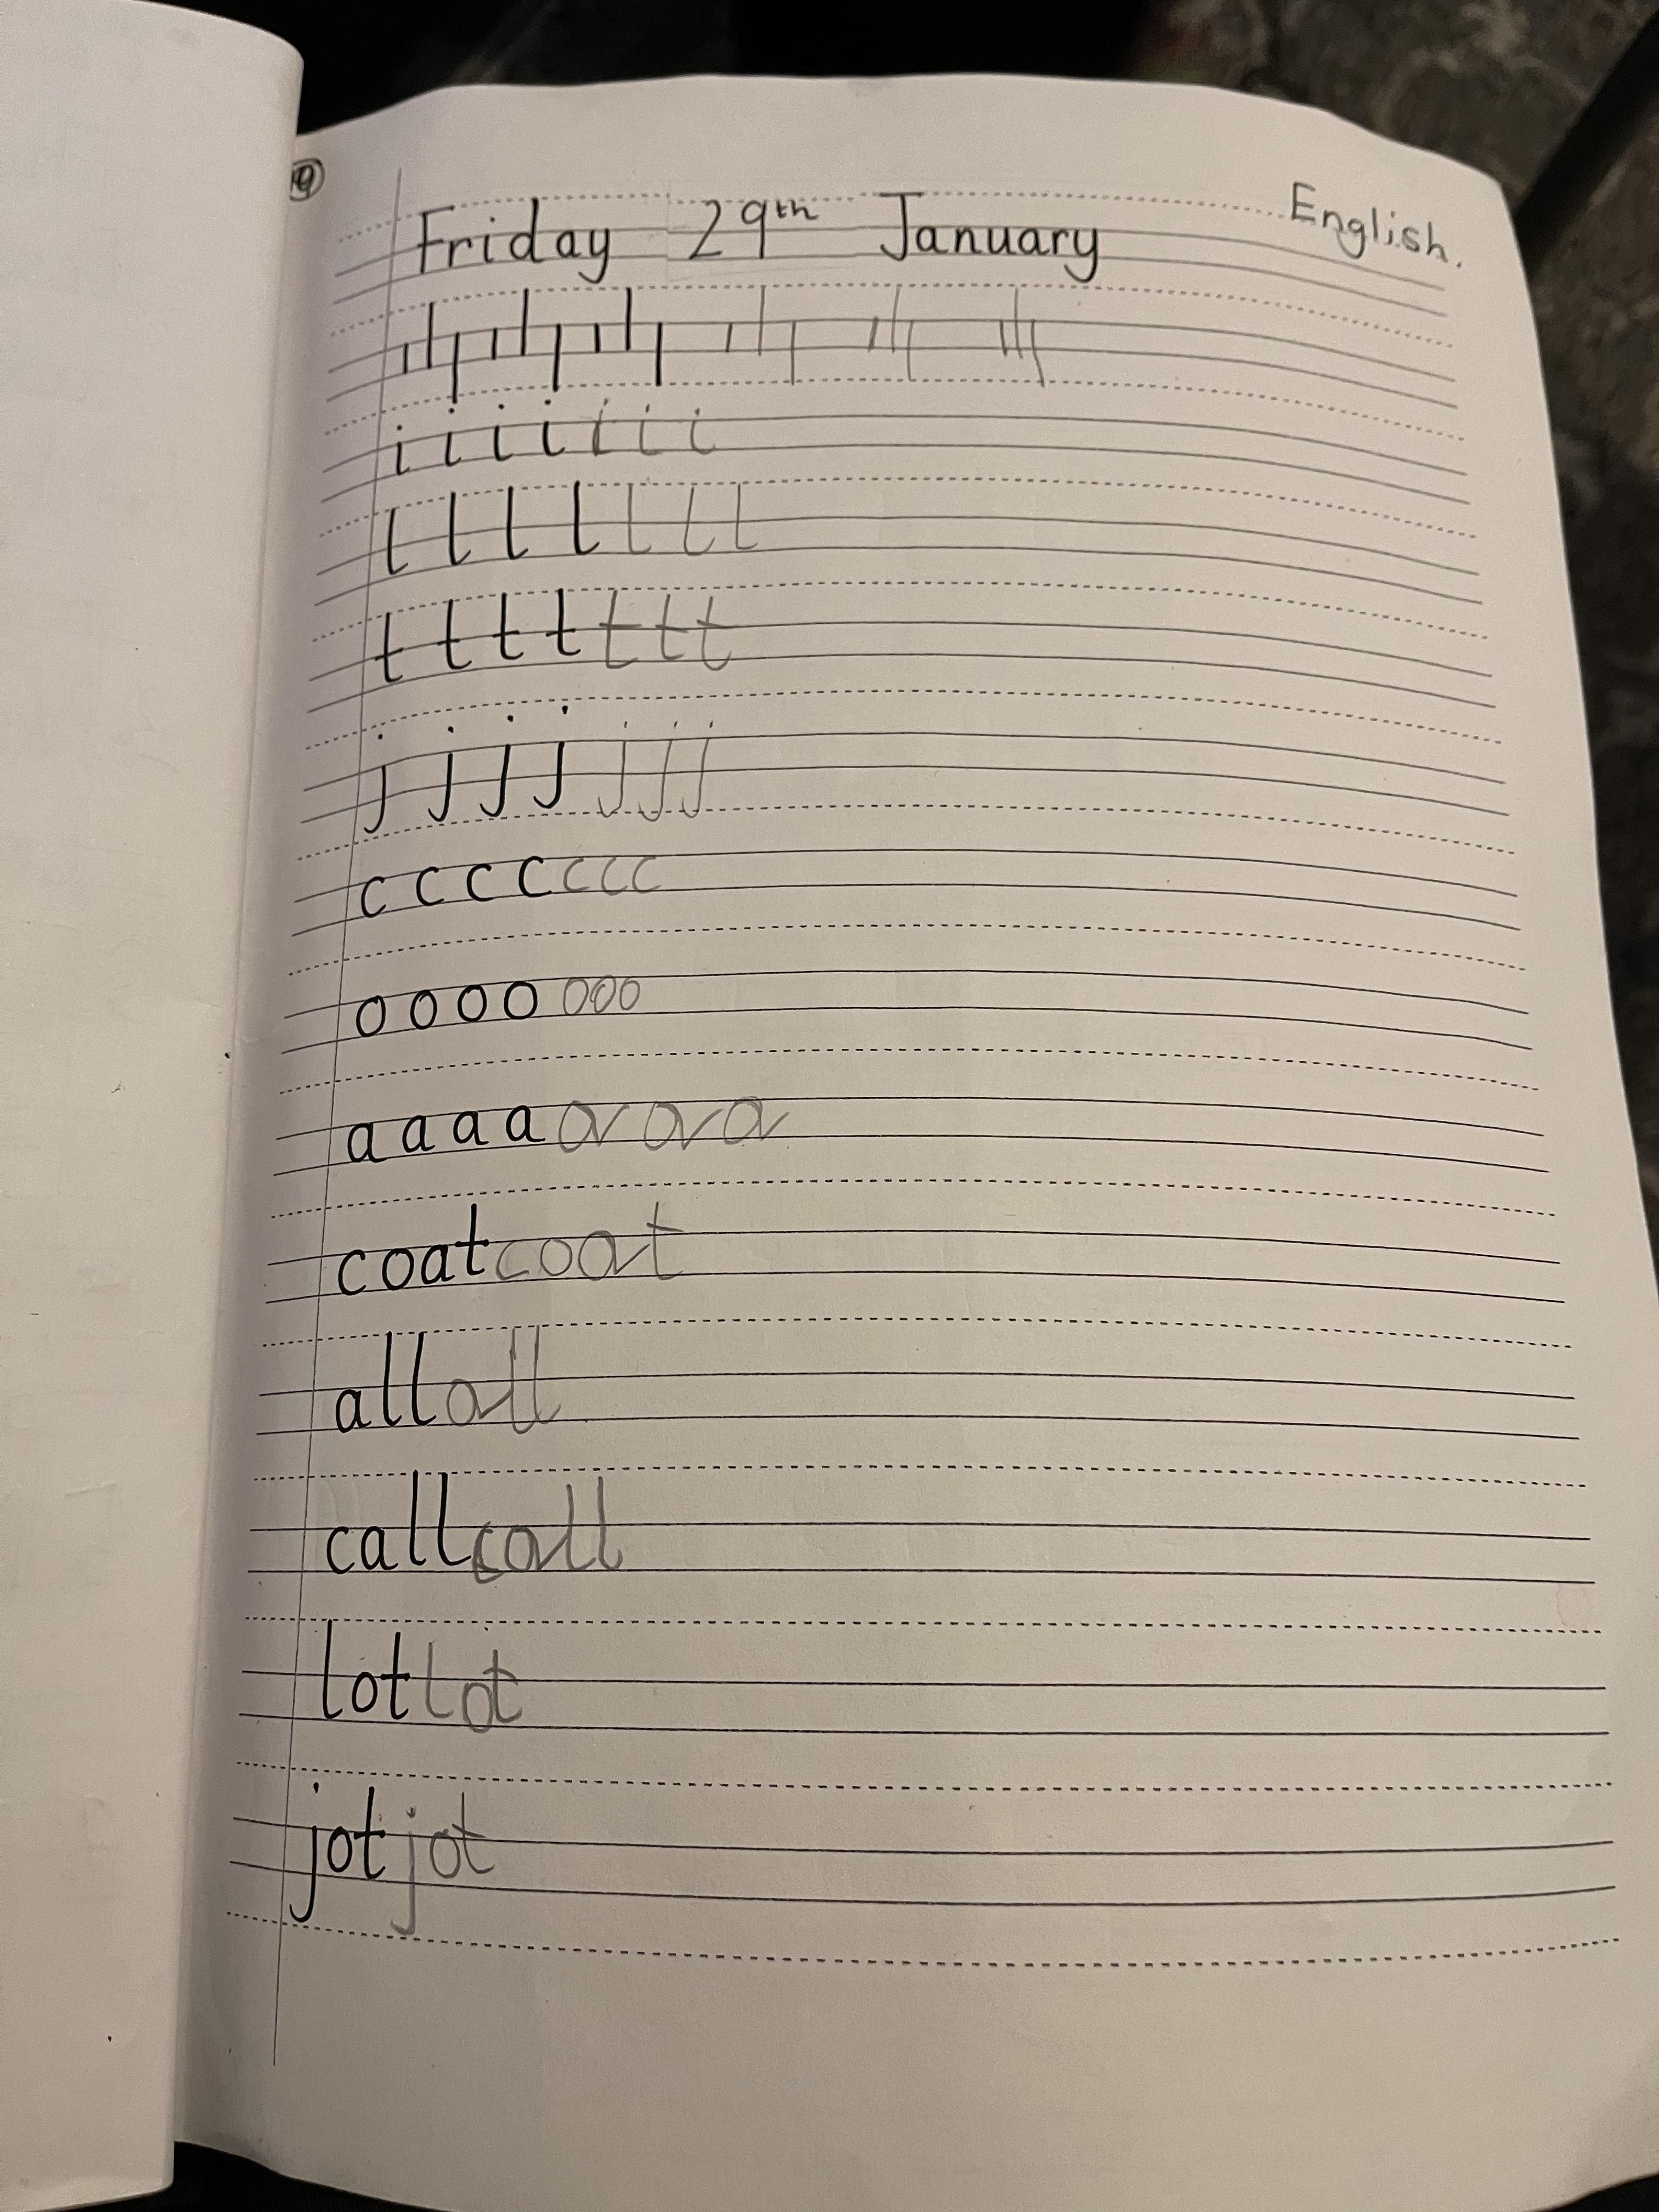 Friday 29th January English.
i i i i i i i
l l l l l l l
t t t t t t t
j j j j j j j
c c c c c c c
o o o o o o o
a a a a a a a
coat coat
all all
call call
lot lot
jot jot